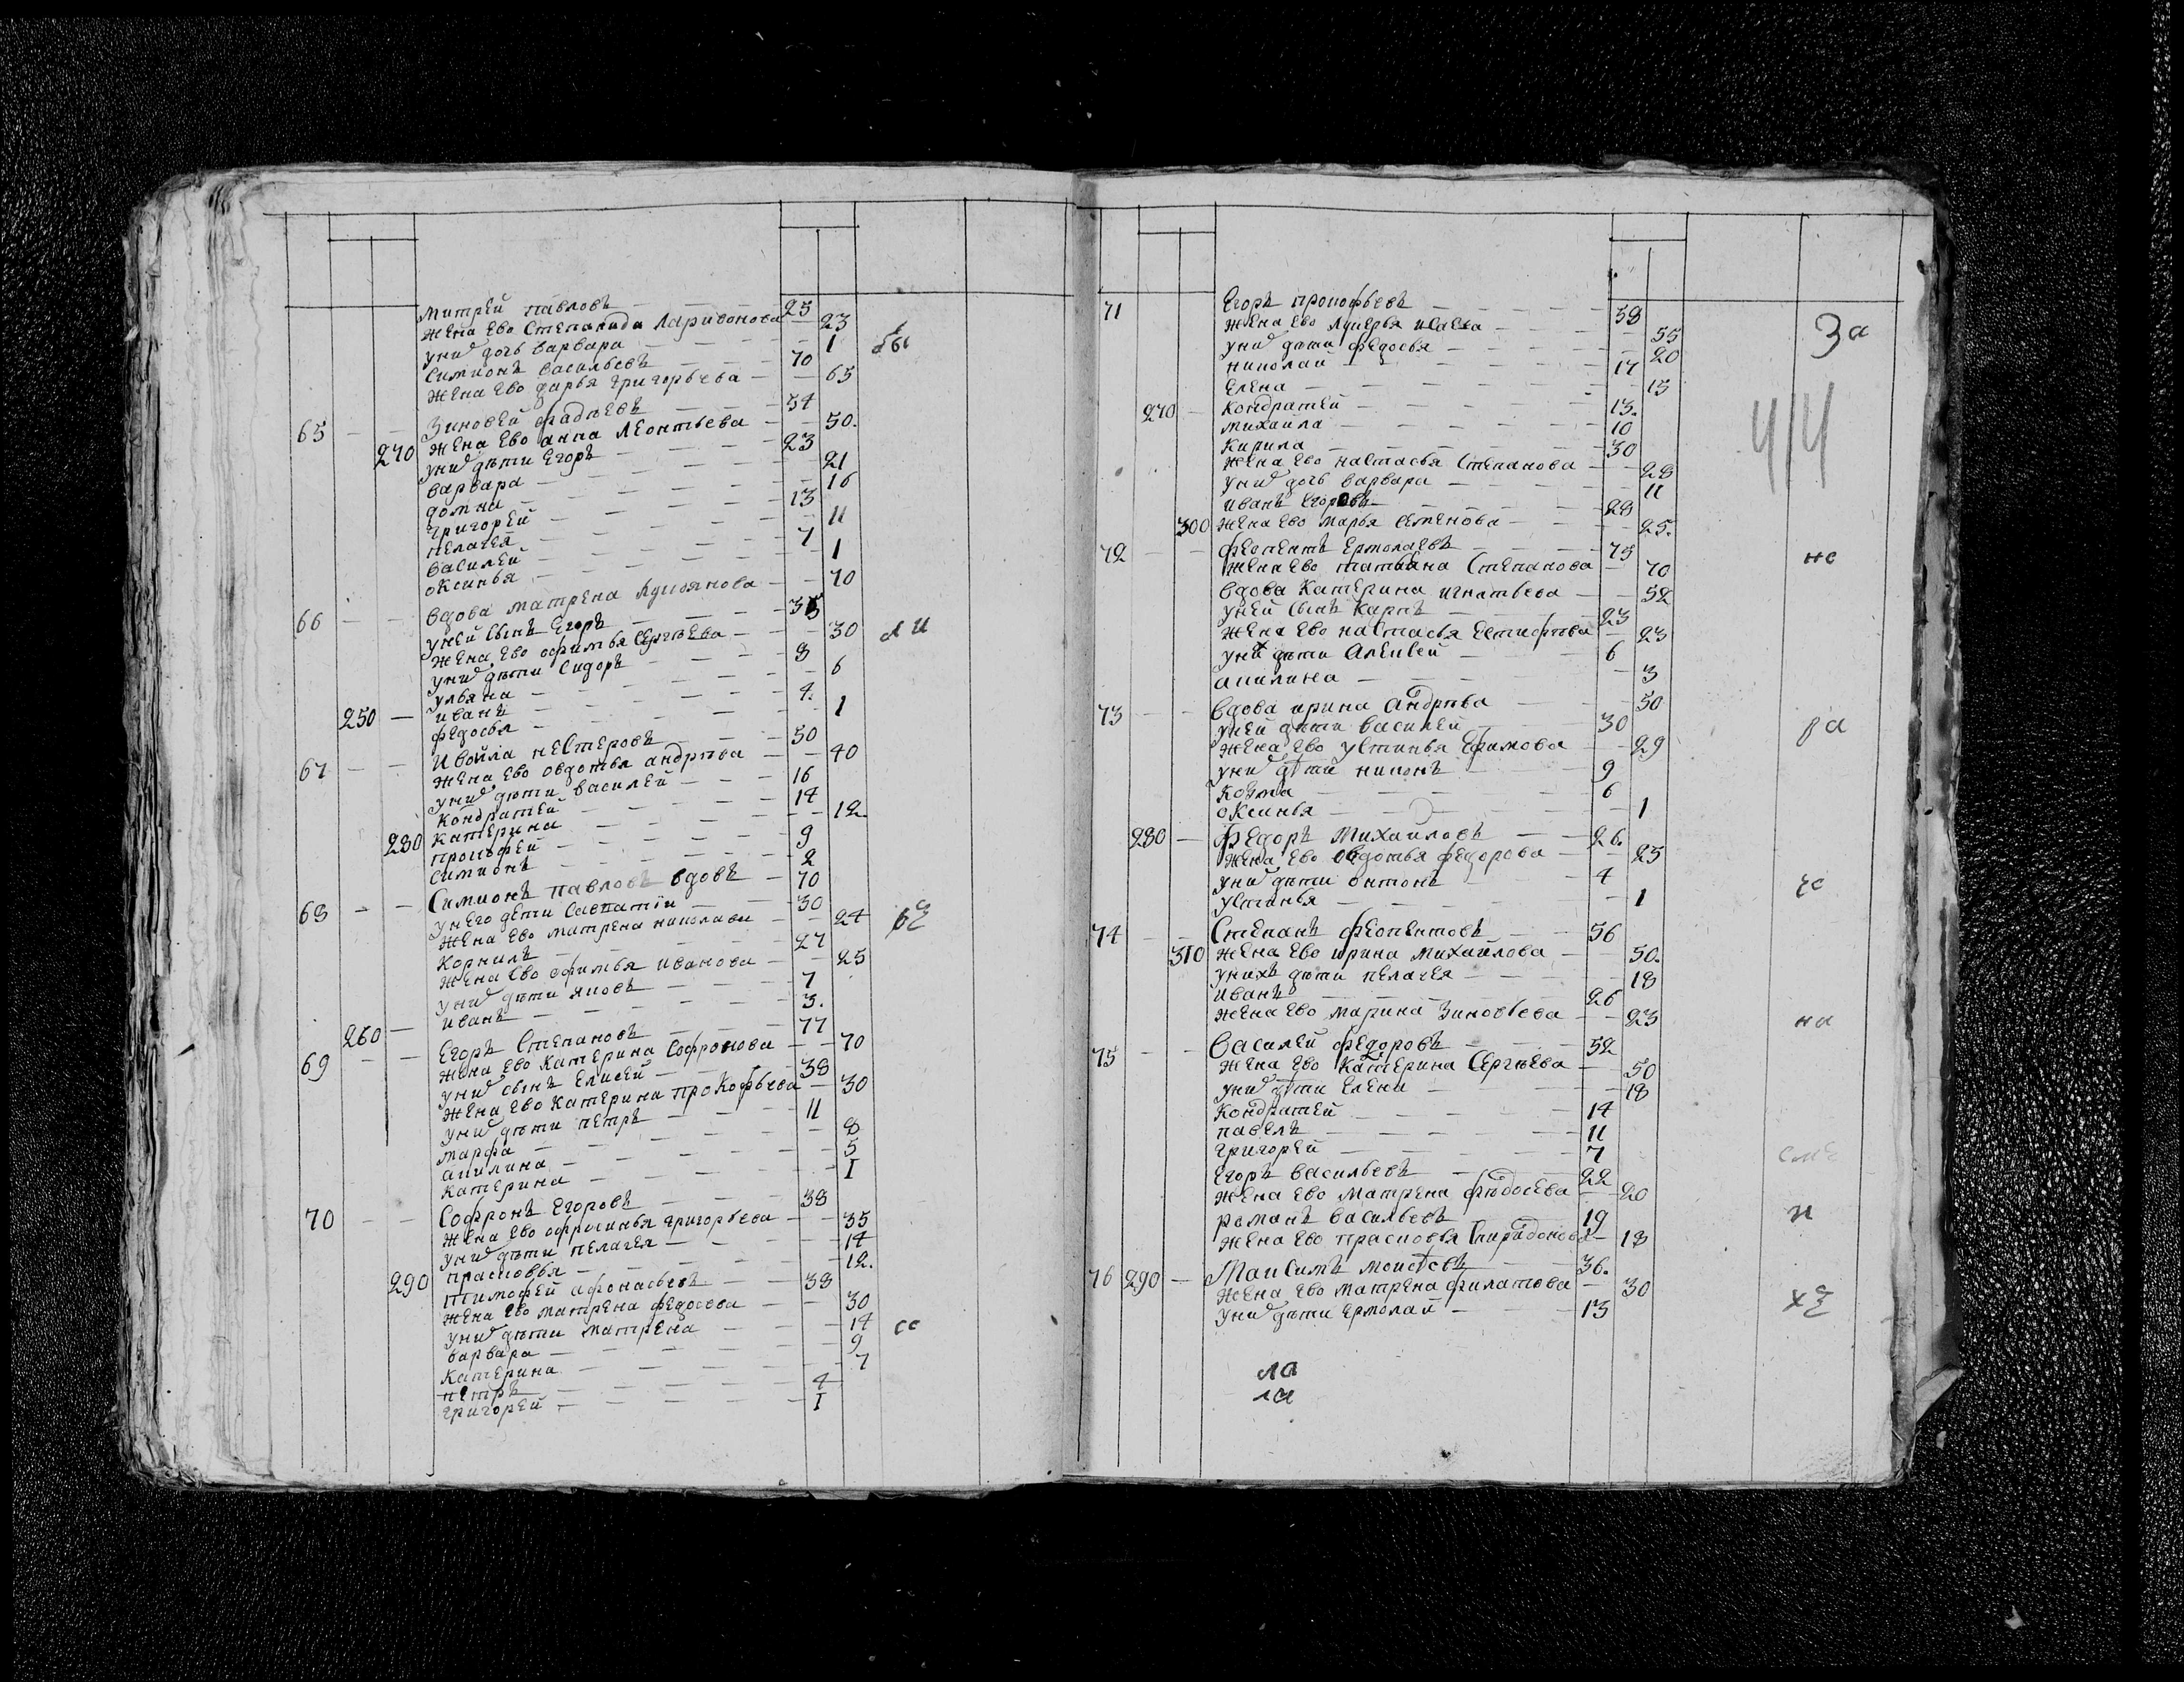 Митрей павловъ — 25
жена ево Степанида Ларивонова — 23
уних дочь варвара — 1
Симионъ васильевъ — 70
жена ево дарья григорьева — 65
65 — Зиновей фадѣевъ — 54
жена ево анна Леонтьева — 50.
270 уних дѣти Егоръ — 23
варвара — 21
домна — 16
григорей — 13
пелагея — 11
василей — 7
оксинья — 1
66 — вдова матрена — 70
уней сынъ Егоръ — 35
жена ево офимья Сергѣева — 30
уних дѣти Сидоръ — 8
ульяна — 6
250 — иванъ — 4.
федосья — 1
67 — нестеровъ — 50
жена ево овдотья андрѣева — 40
уних дѣти василей — 16
Кондратей — 14
280 катерина — 12.
прокофей — 9
симионъ — 2
68 — Симионъ павловъ вдовъ — 70
унего дети Савватiи — 30
жена ево матрена николаева — 24
Корнилъ — 27
жена ево офимья иванова — 25
уних дѣти яковъ — 7
260 — иванъ — 3.
69 — Егоръ Степановъ — 77
жена ево катерина Софронова — 70
уних сынъ Елисей — 38
жена ево катерина прокофьева — 30
уних дѣти петръ — 11
марфа — 8
акилина — 5
катерина — 1
70 — Софронъ Егоровъ — 38
жена ево офросинья григорьева — 35
уних дѣти пелагея — 14
прасковья — 12.
290 тимофей афонасьевъ — 38
жена ево матрена федосеева — 30
уних дѣти матрена — 14
варвара — 9
Катерина — 7
петръ — 4
григорей — 1
71 Егоръ прокофьевъ — 58
жена ево лукерья исаева — 55
уних дѣти федосья — 20
николай — 17
Елена — 15
270 — кондратей — 13.
михаила — 10
Кирила — 30
жена ево настасья Степанова — 28
уних дочь варвара — 11
иванъ Егоровъ — 28
300 жена ево марья семенова — 25.
72 — феопентъ Ермолаевъ — 75
жена ево татьяна Степанова — 70
вдова катерина игнатьева — 52
уней сынъ карпъ — 23
жена ево настасья — 23
уних дѣти Алексей — 6
акилина — 3
73 — вдова ирина андрѣева — 50
уней дѣти василей — 30
жена ево устинья ефимова — 29
уних дѣти никонъ — 9
Козма — 6
оксинья — 1
280 — Федоръ Михаиловъ — 26.
жена ево овдотья федорова — 25
уних дѣти онтонъ — 4
устинья — 1
74 — Степанъ феопентовъ — 56
310 жена ево ирина михайлова — 50.
унихъ дѣти пелагея — 18
иванъ — 26
жена ево марина Зиновьева — 23
75 — василей федоровъ — 52
жена ево катерина Сергѣева — 50
уних дѣти елена — 18
кондратей — 14
павелъ — 11
григорей — 7
Егоръ васильевъ — 22
жена ево матрена — 20
романъ васильевъ — 19
жена ево прасковья — 18
76 290 — Максимъ — 36.
жена ево матрена филатова — 30
уних дѣти ермолай — 13
ла
ла